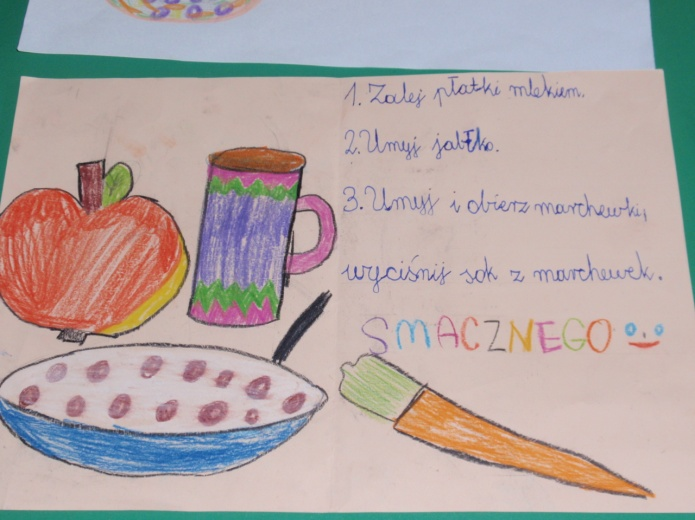 1. Zalej płatki mlekiem.
2. Umyj jabłko.
3. Umyj i obierz marchewki,
wyciśnij sok z marchewek.
SMACZNEGO